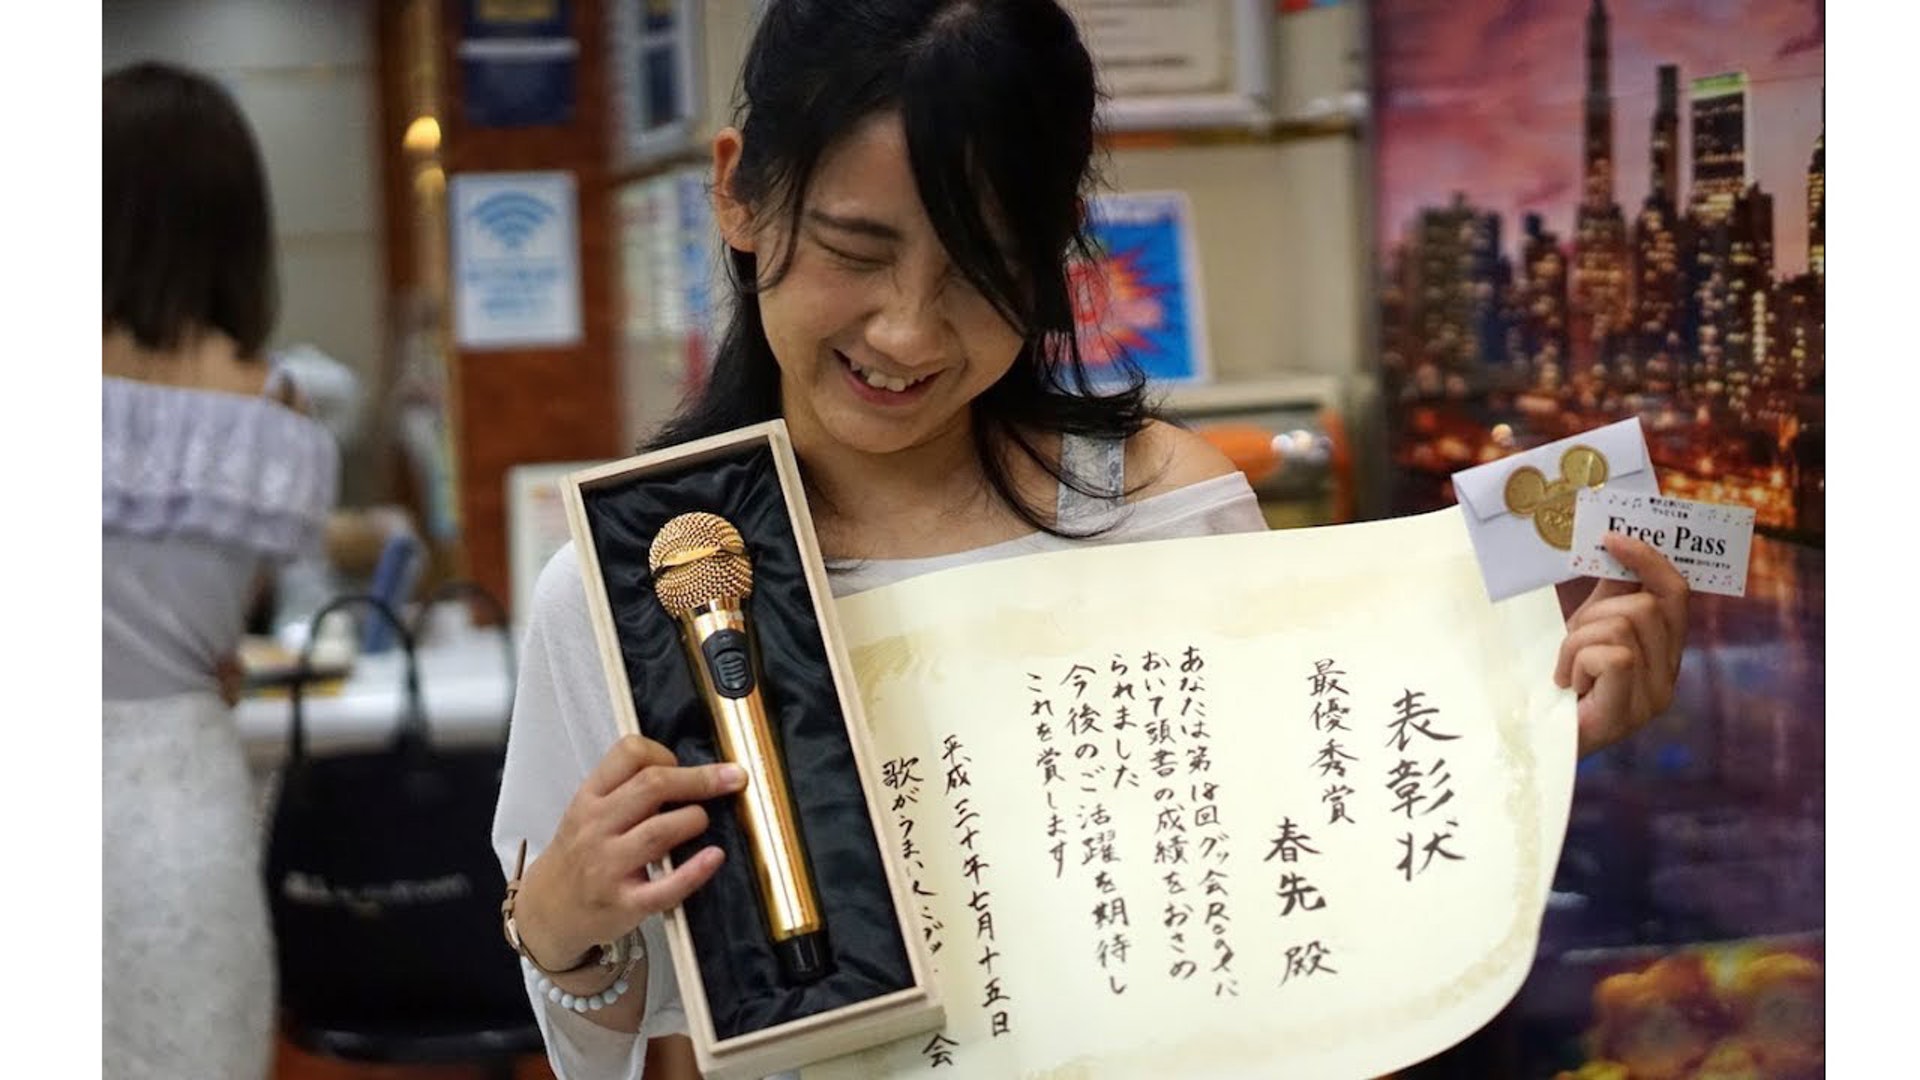 表彰状
最優秀賞
春先 殿
あなたは第18回グッ会Rooxに
おいて頭書の成績をおさめ
られました
今後のご活躍を期待し
これを賞します
平成三十年七月十五日
歌がうまい人
会
Free Pass